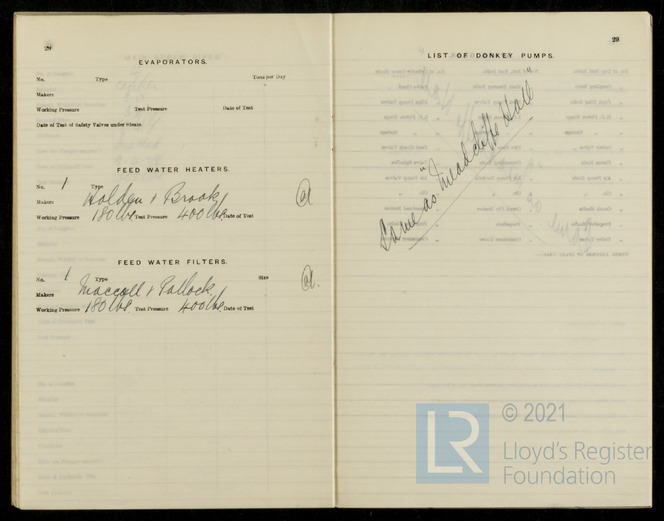 28
EVAPORATORS.
No. Type Tons per Day
Makers
Working Pressure Test Pressure Date of Test
Date of Test of Safety Valves under Steam
FEED WATER HEATERS.
No. 1 Type
Makers Holden & Brook
Working Pressure 180 lbs. Test Pressure 400 lbs. Date of Test
FEED WATER FILTERS.
No. 1 Type Size
Makers Maccoll & Pollock
Working Pressure 180 lbs. Test Pressure 400 lbs. Date of Test
29
LIST OF DONKEY PUMPS.
Same as
© 2021
LR
Lloyd's Register
Foundation